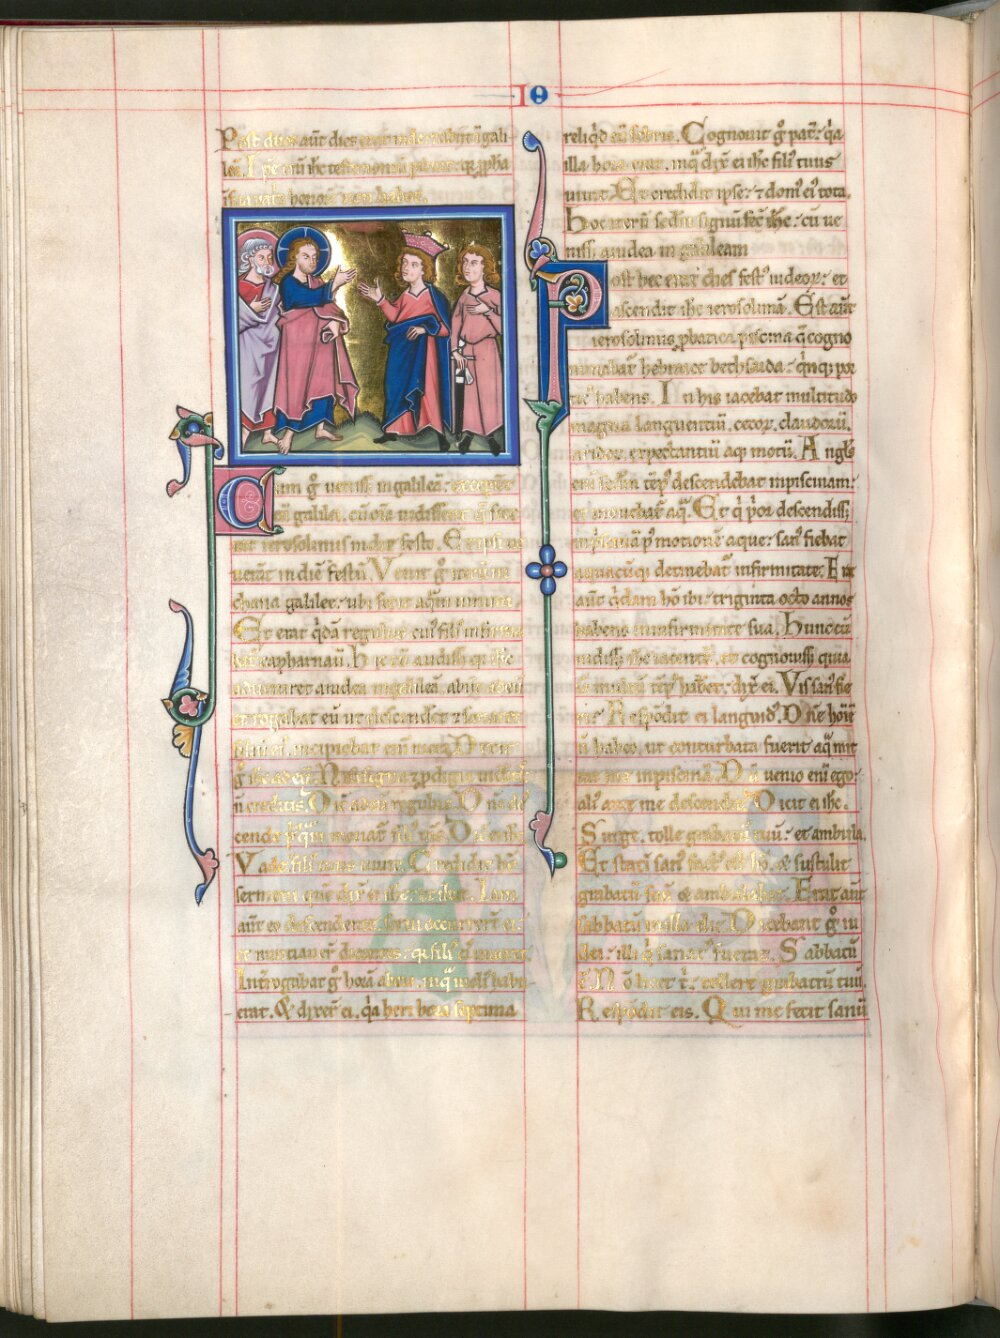 IO
Post duos aūt dies exiit inde & abiit ī gali
leā. Ipe eī ihc testimoniū
Cum gͦ uenisset in galileā: exceperūt
eū galilei. cū oīa uidissent
rat ierosolimis in die festo. Et ipsi
uenāt in diē festū. Venit gͦ iterū in
chana galilee. ubi fecit aq̄m uinum.
Et erat q̇dā regulus cuiꝰ filiꝰ infirma
capharnaū. Hic cū audisset qꝛ ihc
adueniret a iudea in galileā. abiit ad eū
et rogabat eū ut descenderet & sanaret
filiū eī. incipiebat enī mori. Dixit
gͦ ihc ad eū. Nisi signa & pdigia uidtͥs
n̄ creditis. Dic̄ ad eū regulus. Dn̄e
cende p̄ q̄m moriat̄ filꝰ mꝰ. Dic̄ ei ihc
Vade filꝰ tuus uiuit. Credidit hō
sermoni quē dix̄ ei ihc. et ibat. Iam
aūt eo descendente. serui occurrer̄t ei.
et nuntiauer̄t dicentes. qꝛ filꝰ eꝰ uiueret
Int̄rogabat gͦ horā ab eis. in q̄ meliꝰ habu
erat. & dixer̄t ei. q̇a heri hora septima
reliq̇d eū febris. Cognouit gͦ pat̄. q̇a
illa hora erat. in q̄ dix̄ ei ihc filꝰ tuus
uiuit. Et credidit ipse. ⁊ domꝰ eiꝰ tota.
Hoc iterū secdm̄ signū fec̄ ihc: cū ue
nisset a iudea in galileam
Post hec erat dies festꝰ iudeoꝝ: et
ascendit ihc ierosolimā. Est aūt
ierosolimis pbatica piscina q̄ cogno
minabat̄ hebraice bethsaida: q̇nq; por
ticꝰ habens. In his iacebat multitudo
magna languentiū. cecoꝝ. claudorū.
aridoꝝ. expectantiū aq̄ motū. Angls̄
descendebat in pisciniam:
et mouebat̄ aq̄. Et q̇ ṗor descendisset
in pisciniā pꝰ motionē aque: sanꝰ fiebat
a quacūq; detinebat̄ infirmitate. Erat
aūt q̇dam hō ibi: triginta octo annos
habens in infirmitate sua. Hunc cū
uidisset ihc iacentē. et cognouisset quia
habet: dix̄ ei. Vis sanꝰ fie
ri? Respōdit ei languidꝰ. Dn̄e hoīē
n̄ habeo. ut cum turbata fuerit aq̄ mit
tat me in pisciniā. Dū uenio enī ego:
aliꝰ ante me descendit. Dicit ei ihc.
Surge. tolle grabatū tuū: et ambula.
Et statī sanꝰ factꝰ est hō. & sustulit
grabatū suū & ambulabat. Erat aūt
sabbatū in illa die. Dicebant gͦ iu
dei: illi q̇ sanatꝰ fuerat. Sabbatū
ē. Nō licet t̄. tollere grabatū tuū.
Respōdit eis. Qui me fecit sanū